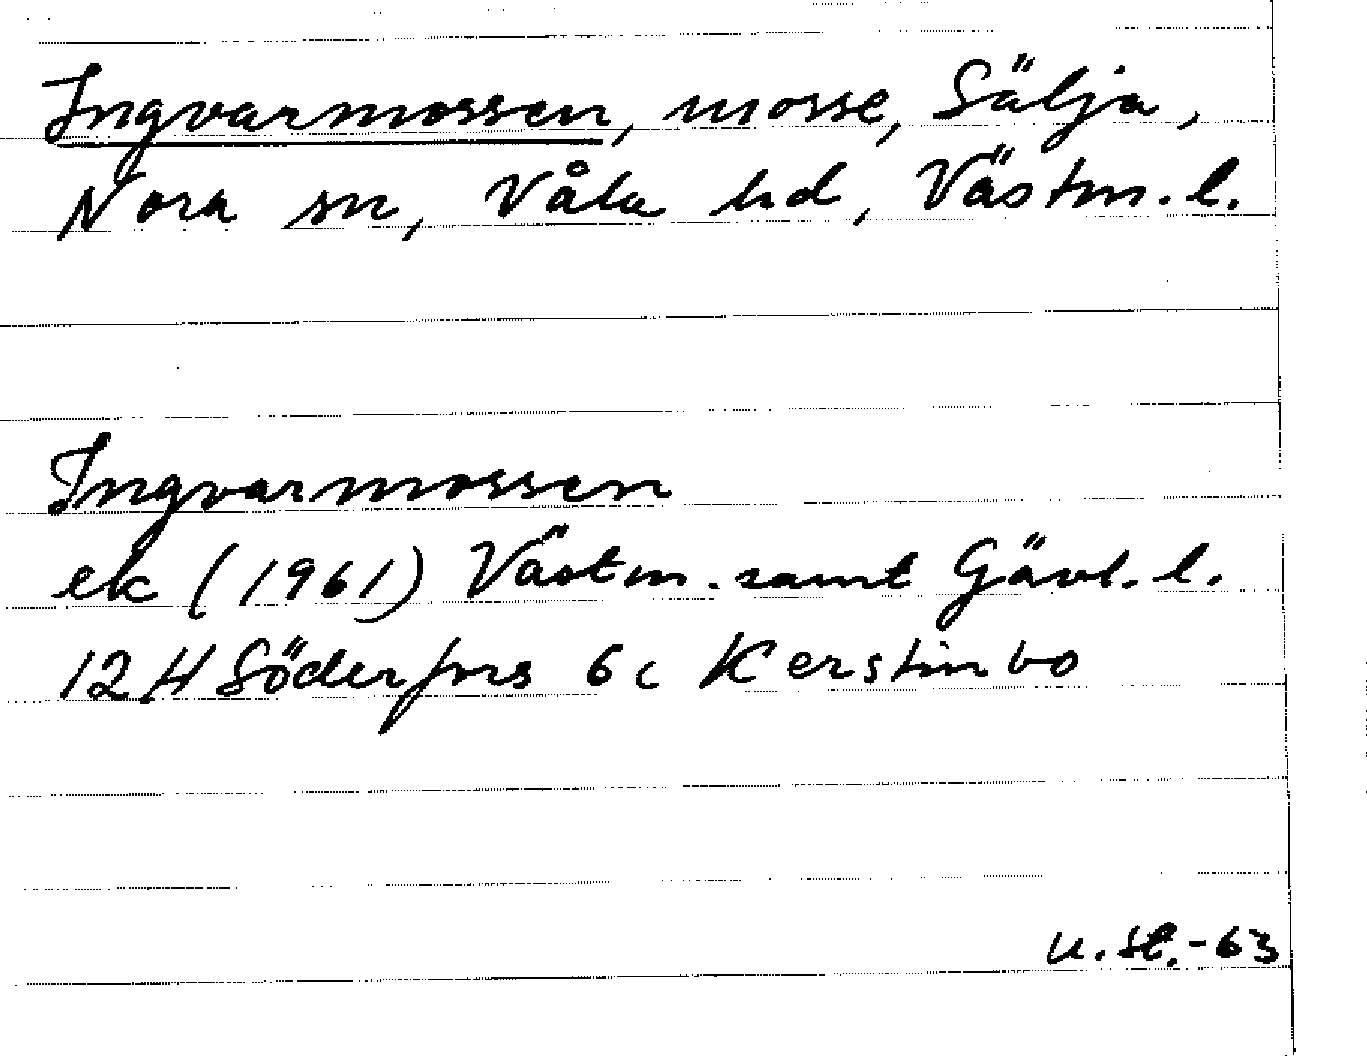 Ingvarmossen, mosse, Sälja,
Nora sn, Våla hd, Västm. l.
Ingvarmossen
ek (1961) Västm. samt Gävl. l.
12 H Söderfors 6 c Kerstinbo
u. St. -63